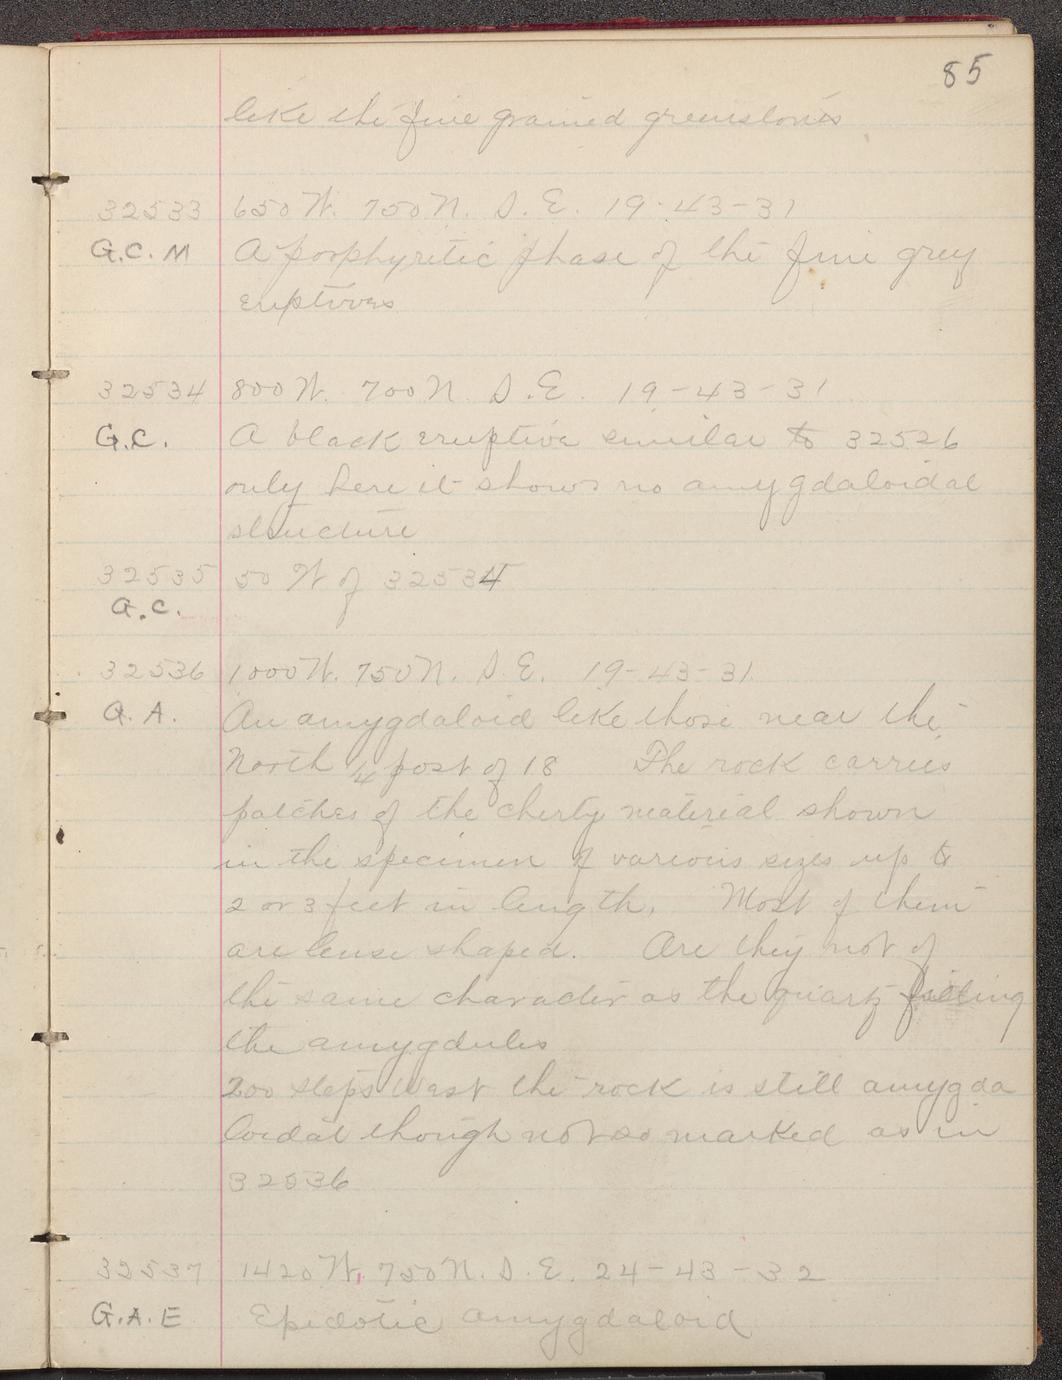 85
like the fine grained greenstones
32533 650 W. 750 N. S.E. 19-43-31
G.C.M A porphyritic phase of the fine grey
eruptives
32534 800 W. 700 N. S.E. 19-43-31
G.C. A black eruptive similar to 32526
only here it shows no amygdaloidal
structure
32535 50 W of 32534
G.C.
32536 1000 W. 750 N. S.E. 19-43-31
G.A. An amygdaloid like those near the
North 1/4 post of 18 The rock carries
patches of the cherty material shown
in the specimen of various sizes up to
2 or 3 feet in length. Most of them
are lense shaped. Are they not of
the same character as the quartz filling
the amygdules
200 steps West the rock is still amygda
loidal though not so marked as in
32536
32537 1420 W, 750 N. S.E. 24-43-32
G.A.E Epidotic amygdaloid